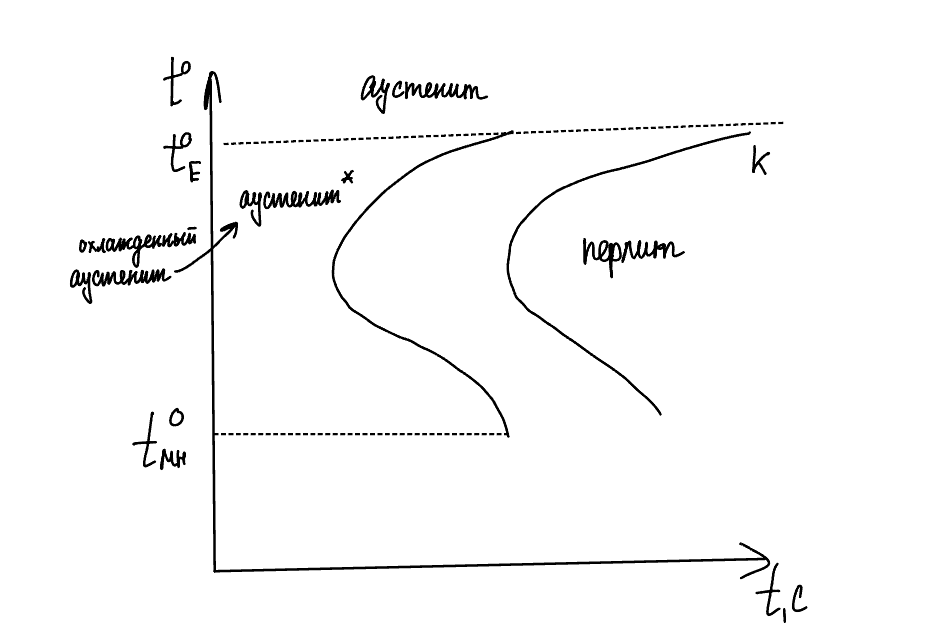 t°
аустенит
t°E
аустенит*
K
охлажденный
аустенит
перлит
t°мн
t,c